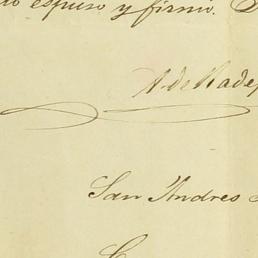 espuso y firmó.
A de
San Andres